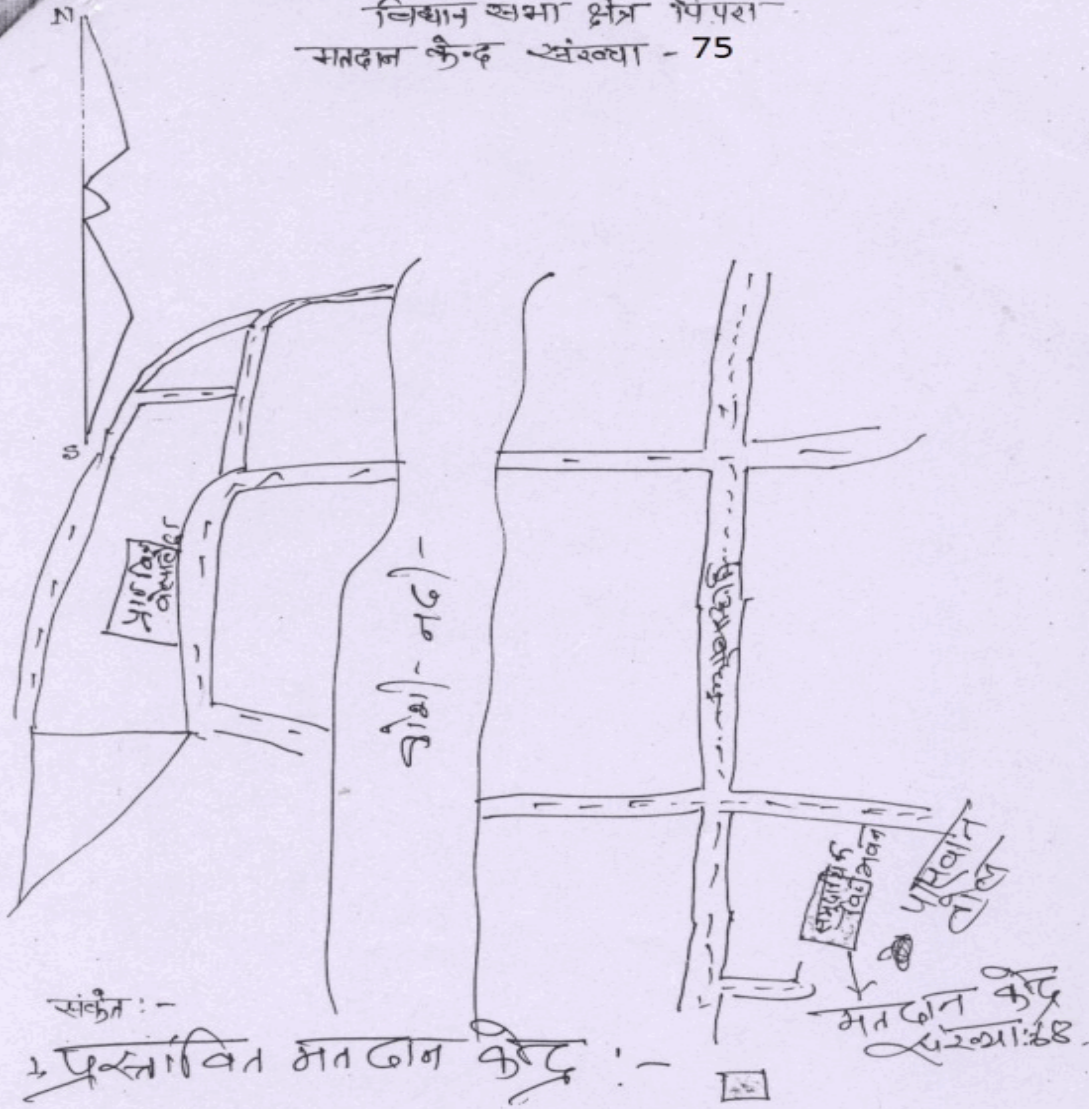 विधान सभा क्षेत्र पिपरा
मतदान केन्द्र संख्या - 75
N
S
प्रा० वि०
नदी -
सामुदायिक
भवन
पासवान
टोला
मतदान केंद्र
संख्या:38.
संकेत : -
प्रस्तावित मतदान केंद्र : -